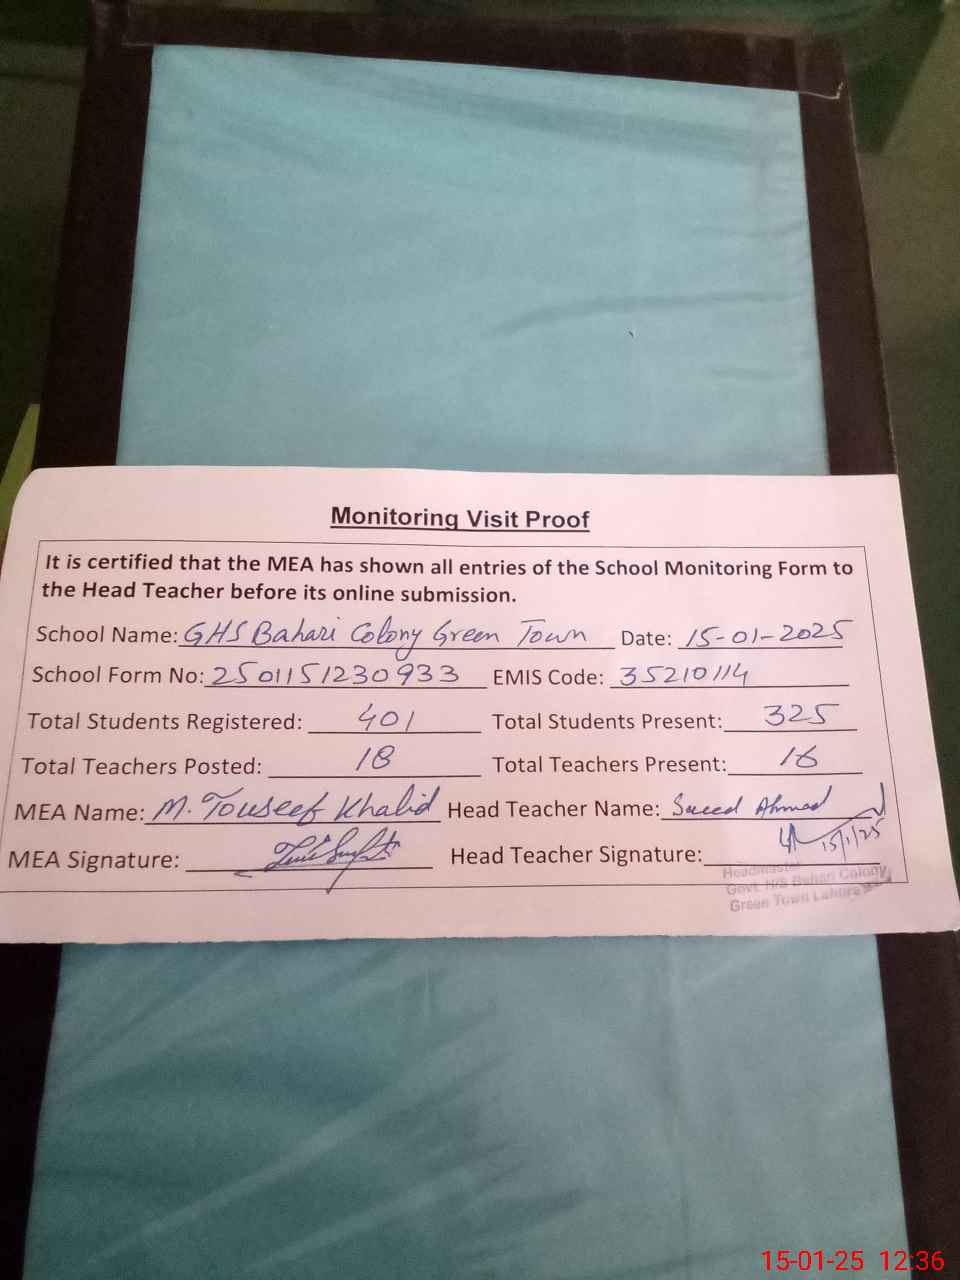 Monitoring Visit Proof
It is certified that the MEA has shown all entries of the School Monitoring Form to
the Head Teacher before its online submission.
School Name: GHS Bahari Colony Green Town Date: 15-01-2025
School Form No: 2501151230933 EMIS Code: 35210114
Total Students Registered: 401 Total Students Present: 325
Total Teachers Posted: 18 Total Teachers Present: 16
MEA Name: M. Touseef Khalid Head Teacher Name: Saeed Ahmed
MEA Signature: Head Teacher Signature: 15/1/25
Headmaster
Govt. H/S Bahari Colony
Green Town Lahore
15-01-25 12:36